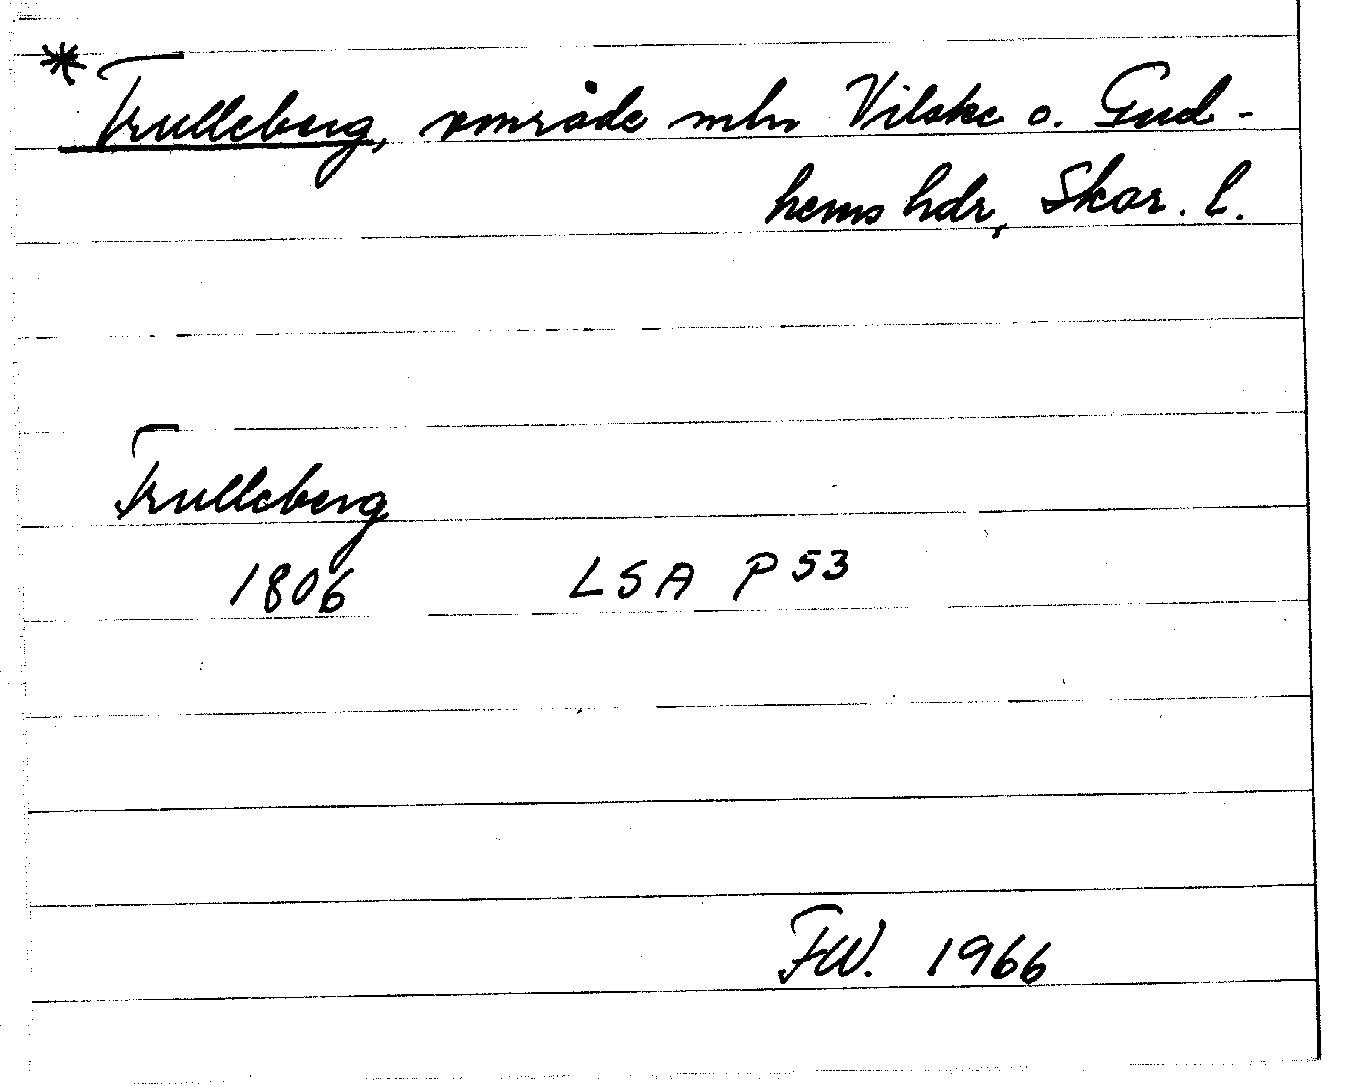 * Trulleberg, område mln Vilske o. Gud-
hems hdr, Skar. l.
Trulleberg
1806 LSA P 53
FW. 1966